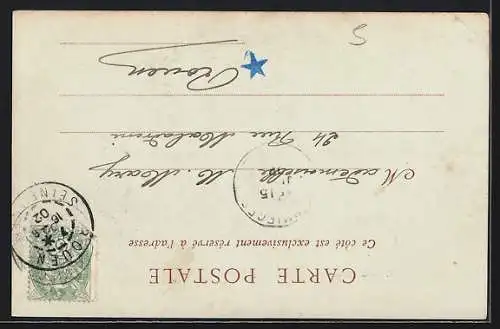 CARTE POSTALE
Ce côté est exclusivement réservé à l'adresse
Mademoiselle M. Mary
24 Rue
Rouen
5
ROUEN
SEINE
16
02
15